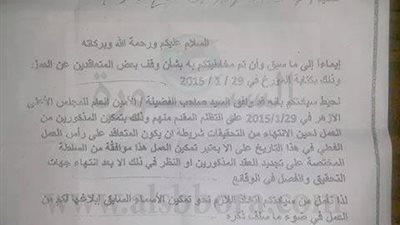 السلام عليكم ورحمة الله وبركاته
إيماءاً إلى ما سبق وأن تم مخاطبتكم به بشأن وقف بعض المتعاقدين عن العمل
وذلك بكتابة المؤرخ في 29 / 1 / 2015
نحيط سيادتكم بأنه قد وافق السيد صاحب الفضيلة / الأمين العام للمجلس الأعلى
الأزهر في 2015/1/29 على التظلم المقدم منهم وذلك بتمكين المذكورين من
العمل لحين الانتهاء من التحقيقات شريطة ان يكون المتعاقد على رأس العمل
الفعلي في هذا التاريخ على إلا يعتبر تمكين العمل هذا موافقة من السلطة
المختصة على تجديد العقد المذكورين او النظر في ذلك الا بعد انتهاء جهات
التحقيق والفصل في الوقائع
لذا نأمل من سيادتكم اتخاذ اللازم نحو تمكين الأسماء السابق إبلاغها لكم من
العمل في ضوء ما سلف ذكره
www.alsbbora